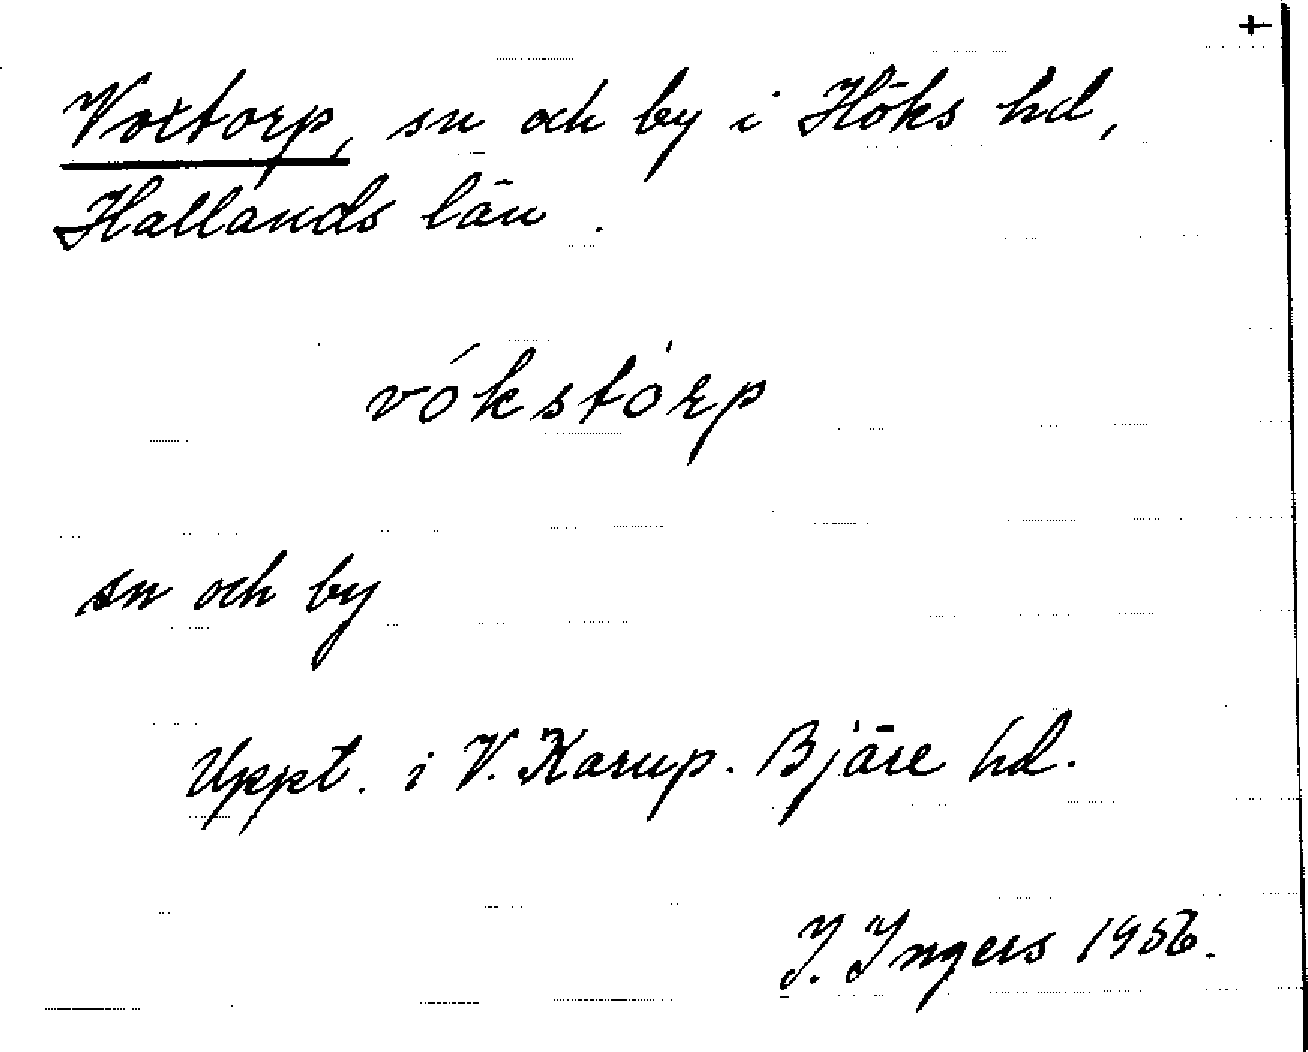 +
Voxtorp, sn och by i Höks hd,
Hallands län.
vókstòrp
sn och by
Uppt. i V. Karup. Bjäre hd.
I. Ingers 1956.